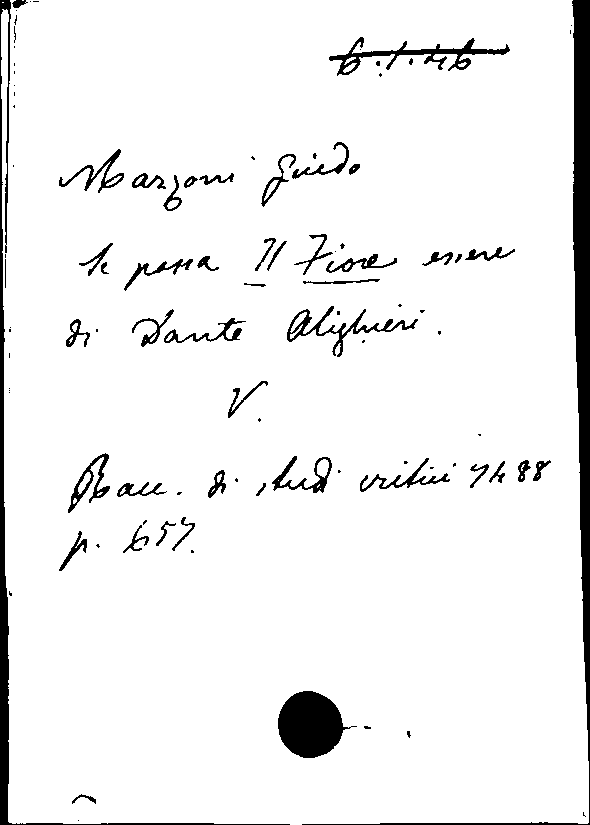 6.1.46
Mazzoni Guido
Se possa Il Fiore essere
di Dante Alighieri.
V.
Racc. di studi critici 7488
p. 657.